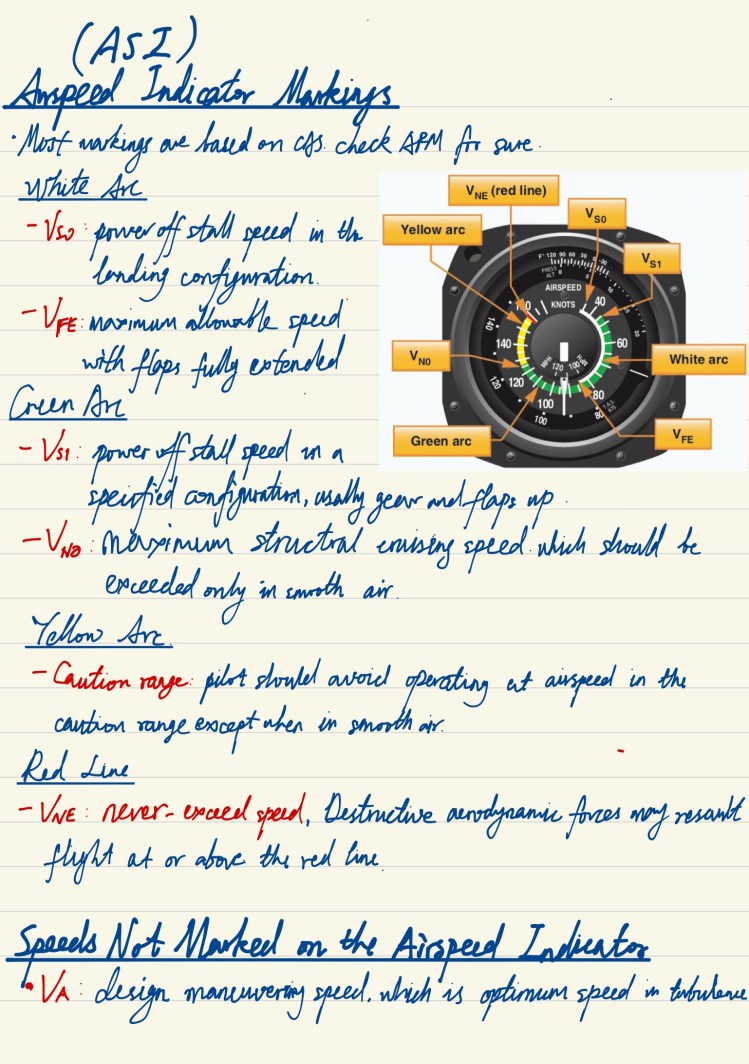 (ASI)
Airspeed Indicator Markings
· Most markings are based on CAS. check AFM for sure.
White Arc
- VS0: power off stall speed in the
landing configuration.
- VFE: maximum allowable speed
with flaps fully extended
Green Arc
- VS1: power off stall speed in a
specified configuration, usually gear and flaps up.
- VNO: maximum structral cruising speed. which should be
exceeded only in smooth air.
Yellow Arc
- Caution range: pilot should avoid operating at airspeed in the
caution range except when in smooth air.
Red Line
- VNE: never-exceed speed, Destructive aerodynamic forces may resault
flight at or above the red line
Speeds Not Marked on the Airspeed Indicator
• VA: design maneuvering speed. which is optimum speed in turbulence
VNE (red line)
VS0
Yellow arc
VS1
AIRSPEED
KNOTS
40
60
80
100
120
140
VN0
White arc
Green arc
VFE
PRESS
ALT
F° 120 90 60 30 0 -30
MPH
120
100
140
120
100
80
T.A.S.
KTS